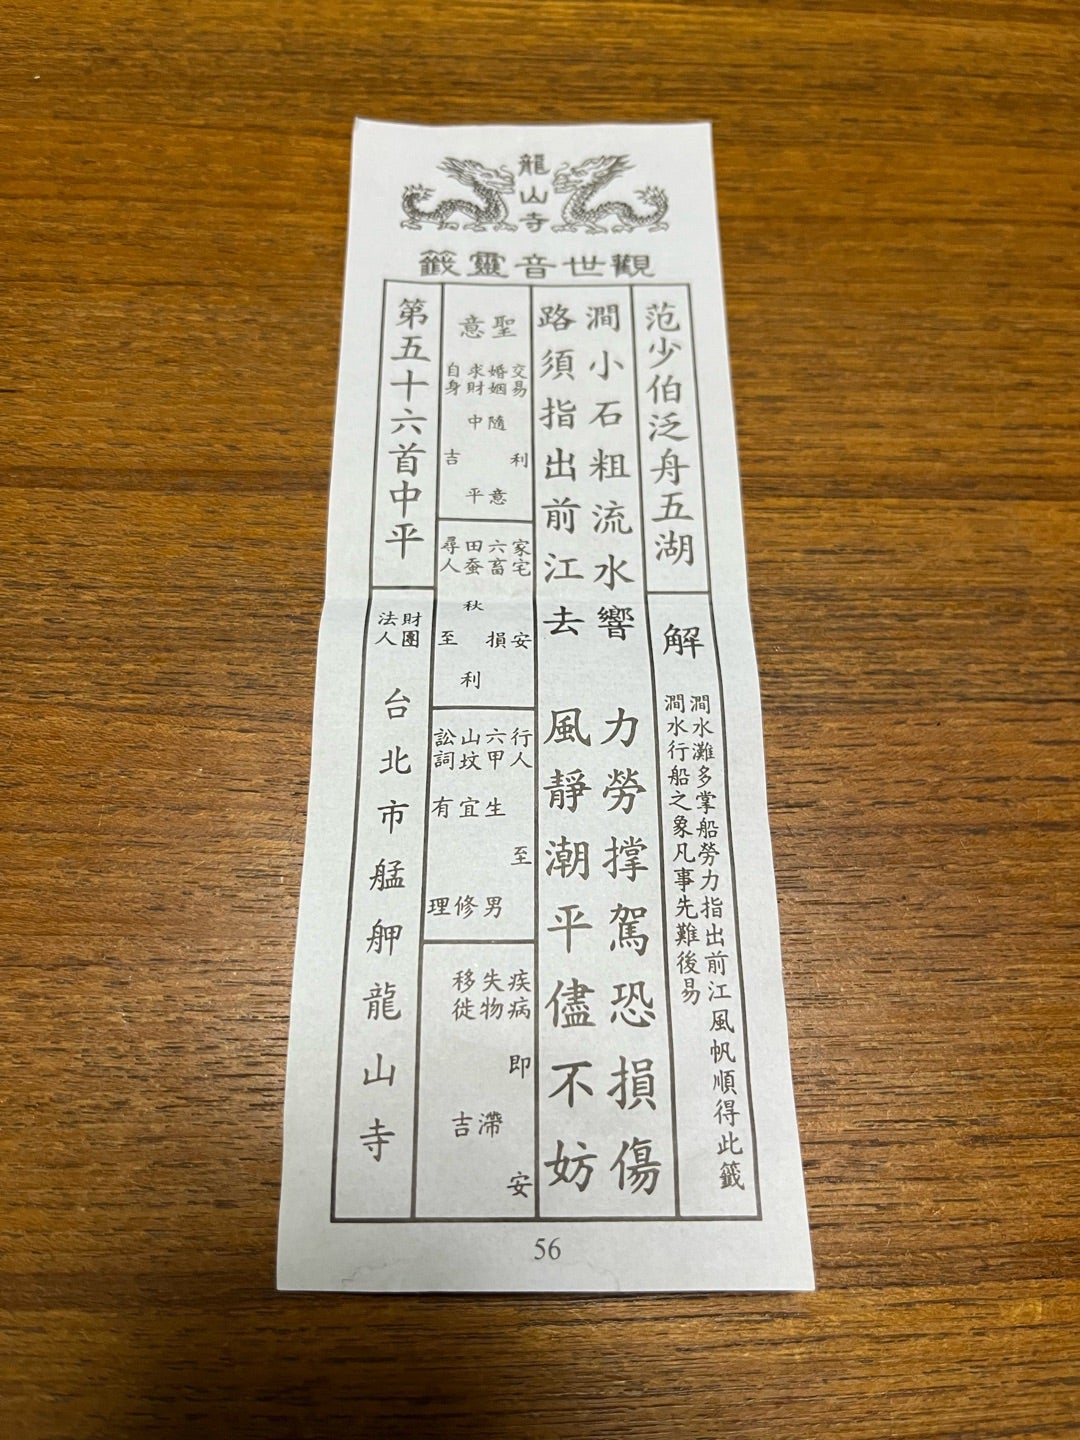 龍山寺
觀世音靈籤
范少伯泛舟五湖
解
澗水灘多掌船勞力指出前江風帆順得此籤
澗水行船之象凡事先難後易
澗小石粗流水響 力勞撑駕恐損傷
路須指出前江去 風靜潮平儘不妨
聖意
交易 利
婚姻 隨意
求財 中平
自身 吉
家宅 安
六畜 損
田蚕 秋利
尋人 至
行人 至
六甲 生男
山坟 宜修
訟詞 有理
疾病 即安
失物 滯
移徙 吉
第五十六首中平
財團法人
台北市艋舺龍山寺
56